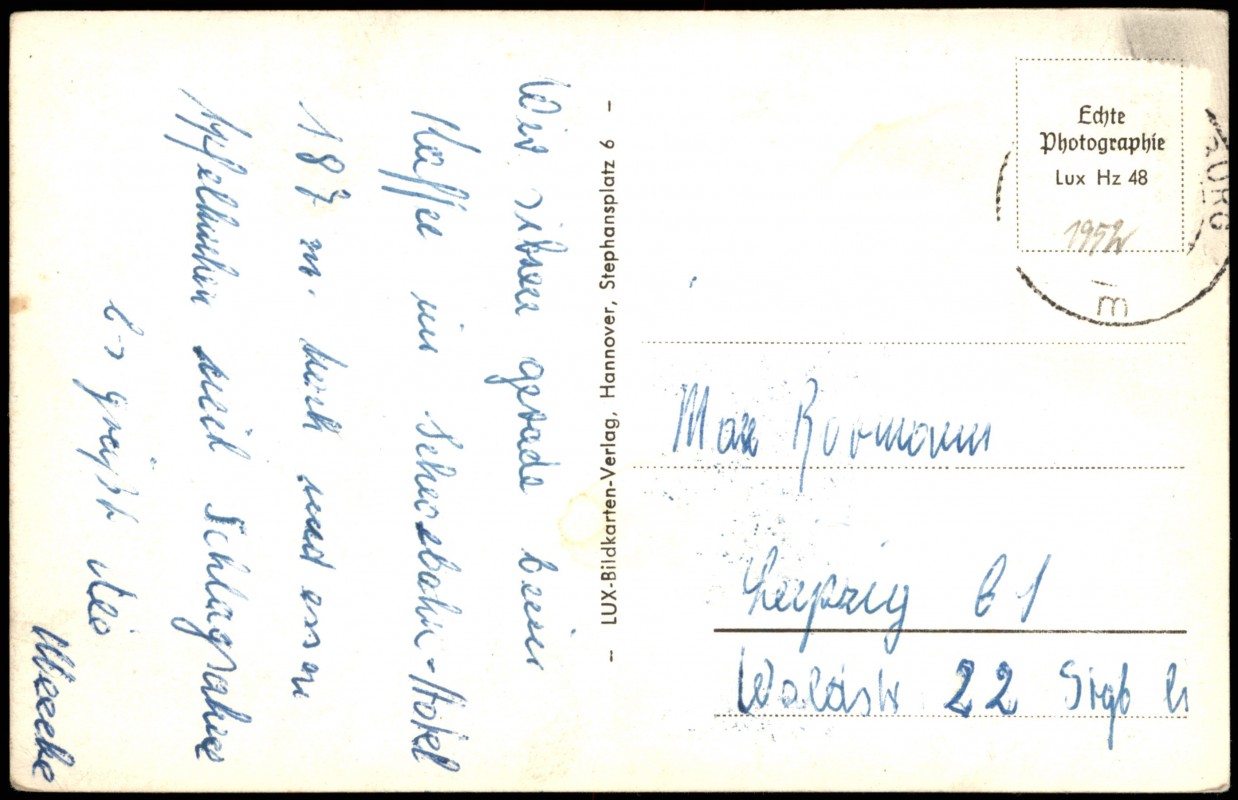 Wir sitzen gerade beim
Kaffee im Schwebebahn-Hotel
187 m. hoch und essen
Apfelkuchen mit Schlagsahne
Es grüßt die
- LUX-Bildkarten-Verlag, Hannover, Stephansplatz 6 -
Echte
Photographie
Lux Hz 48
1952
BURG
m
Max
Leipzig C 1
Waldstr 22